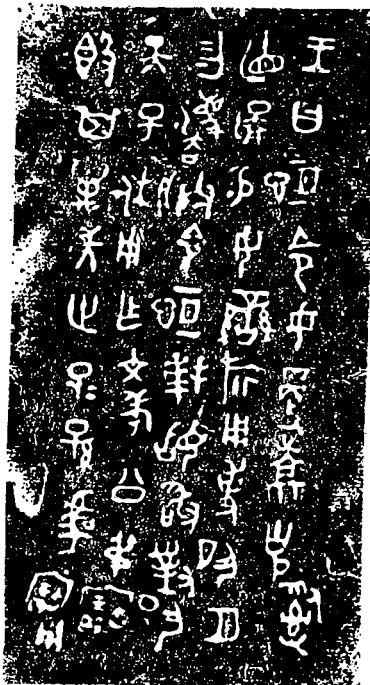 王曰恒令女更喬克𤔲
直啚易女䜌旂用事夙夕
勿灋朕令恒拜䭫敢對揚
天子休用乍文考公叔寶
𣪘其萬年世子子孫虞寶用